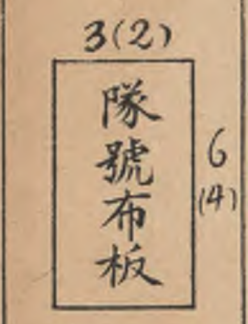 3(2)
隊號布板
6
(4)